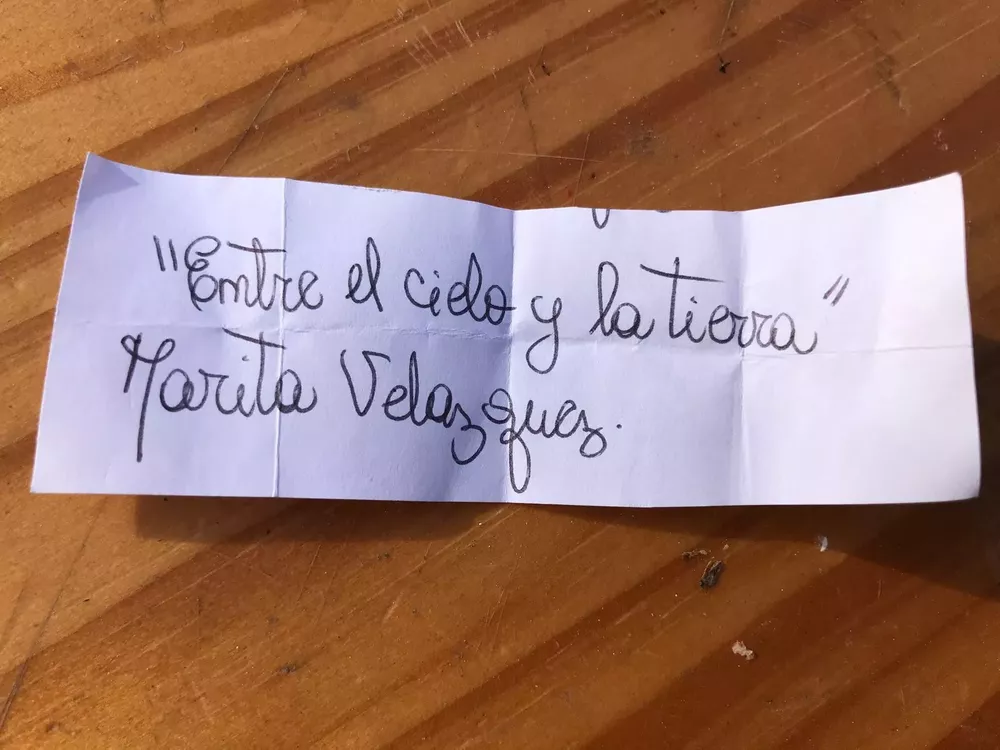 "Entre el cielo y la tierra"
Marita Velazquez.